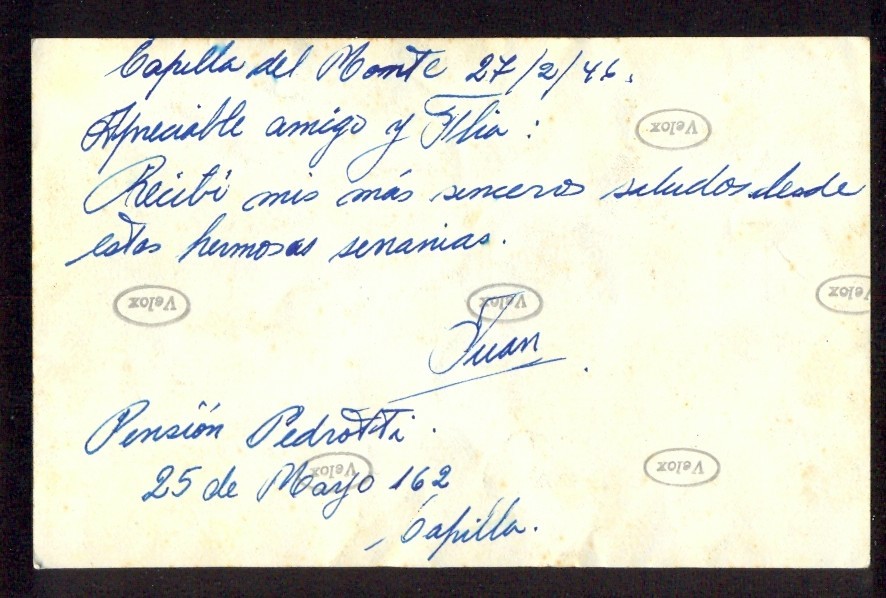 Capilla del Monte 27/2/46.
Apreciable amigo y Flia:
Velox
Recibí mis más sinceros saludos desde
estas hermosas serranias.
Velox Velox Velox
Juan
Pensión Pedrotti.
Velox Velox
25 de Mayo 162
Capilla.